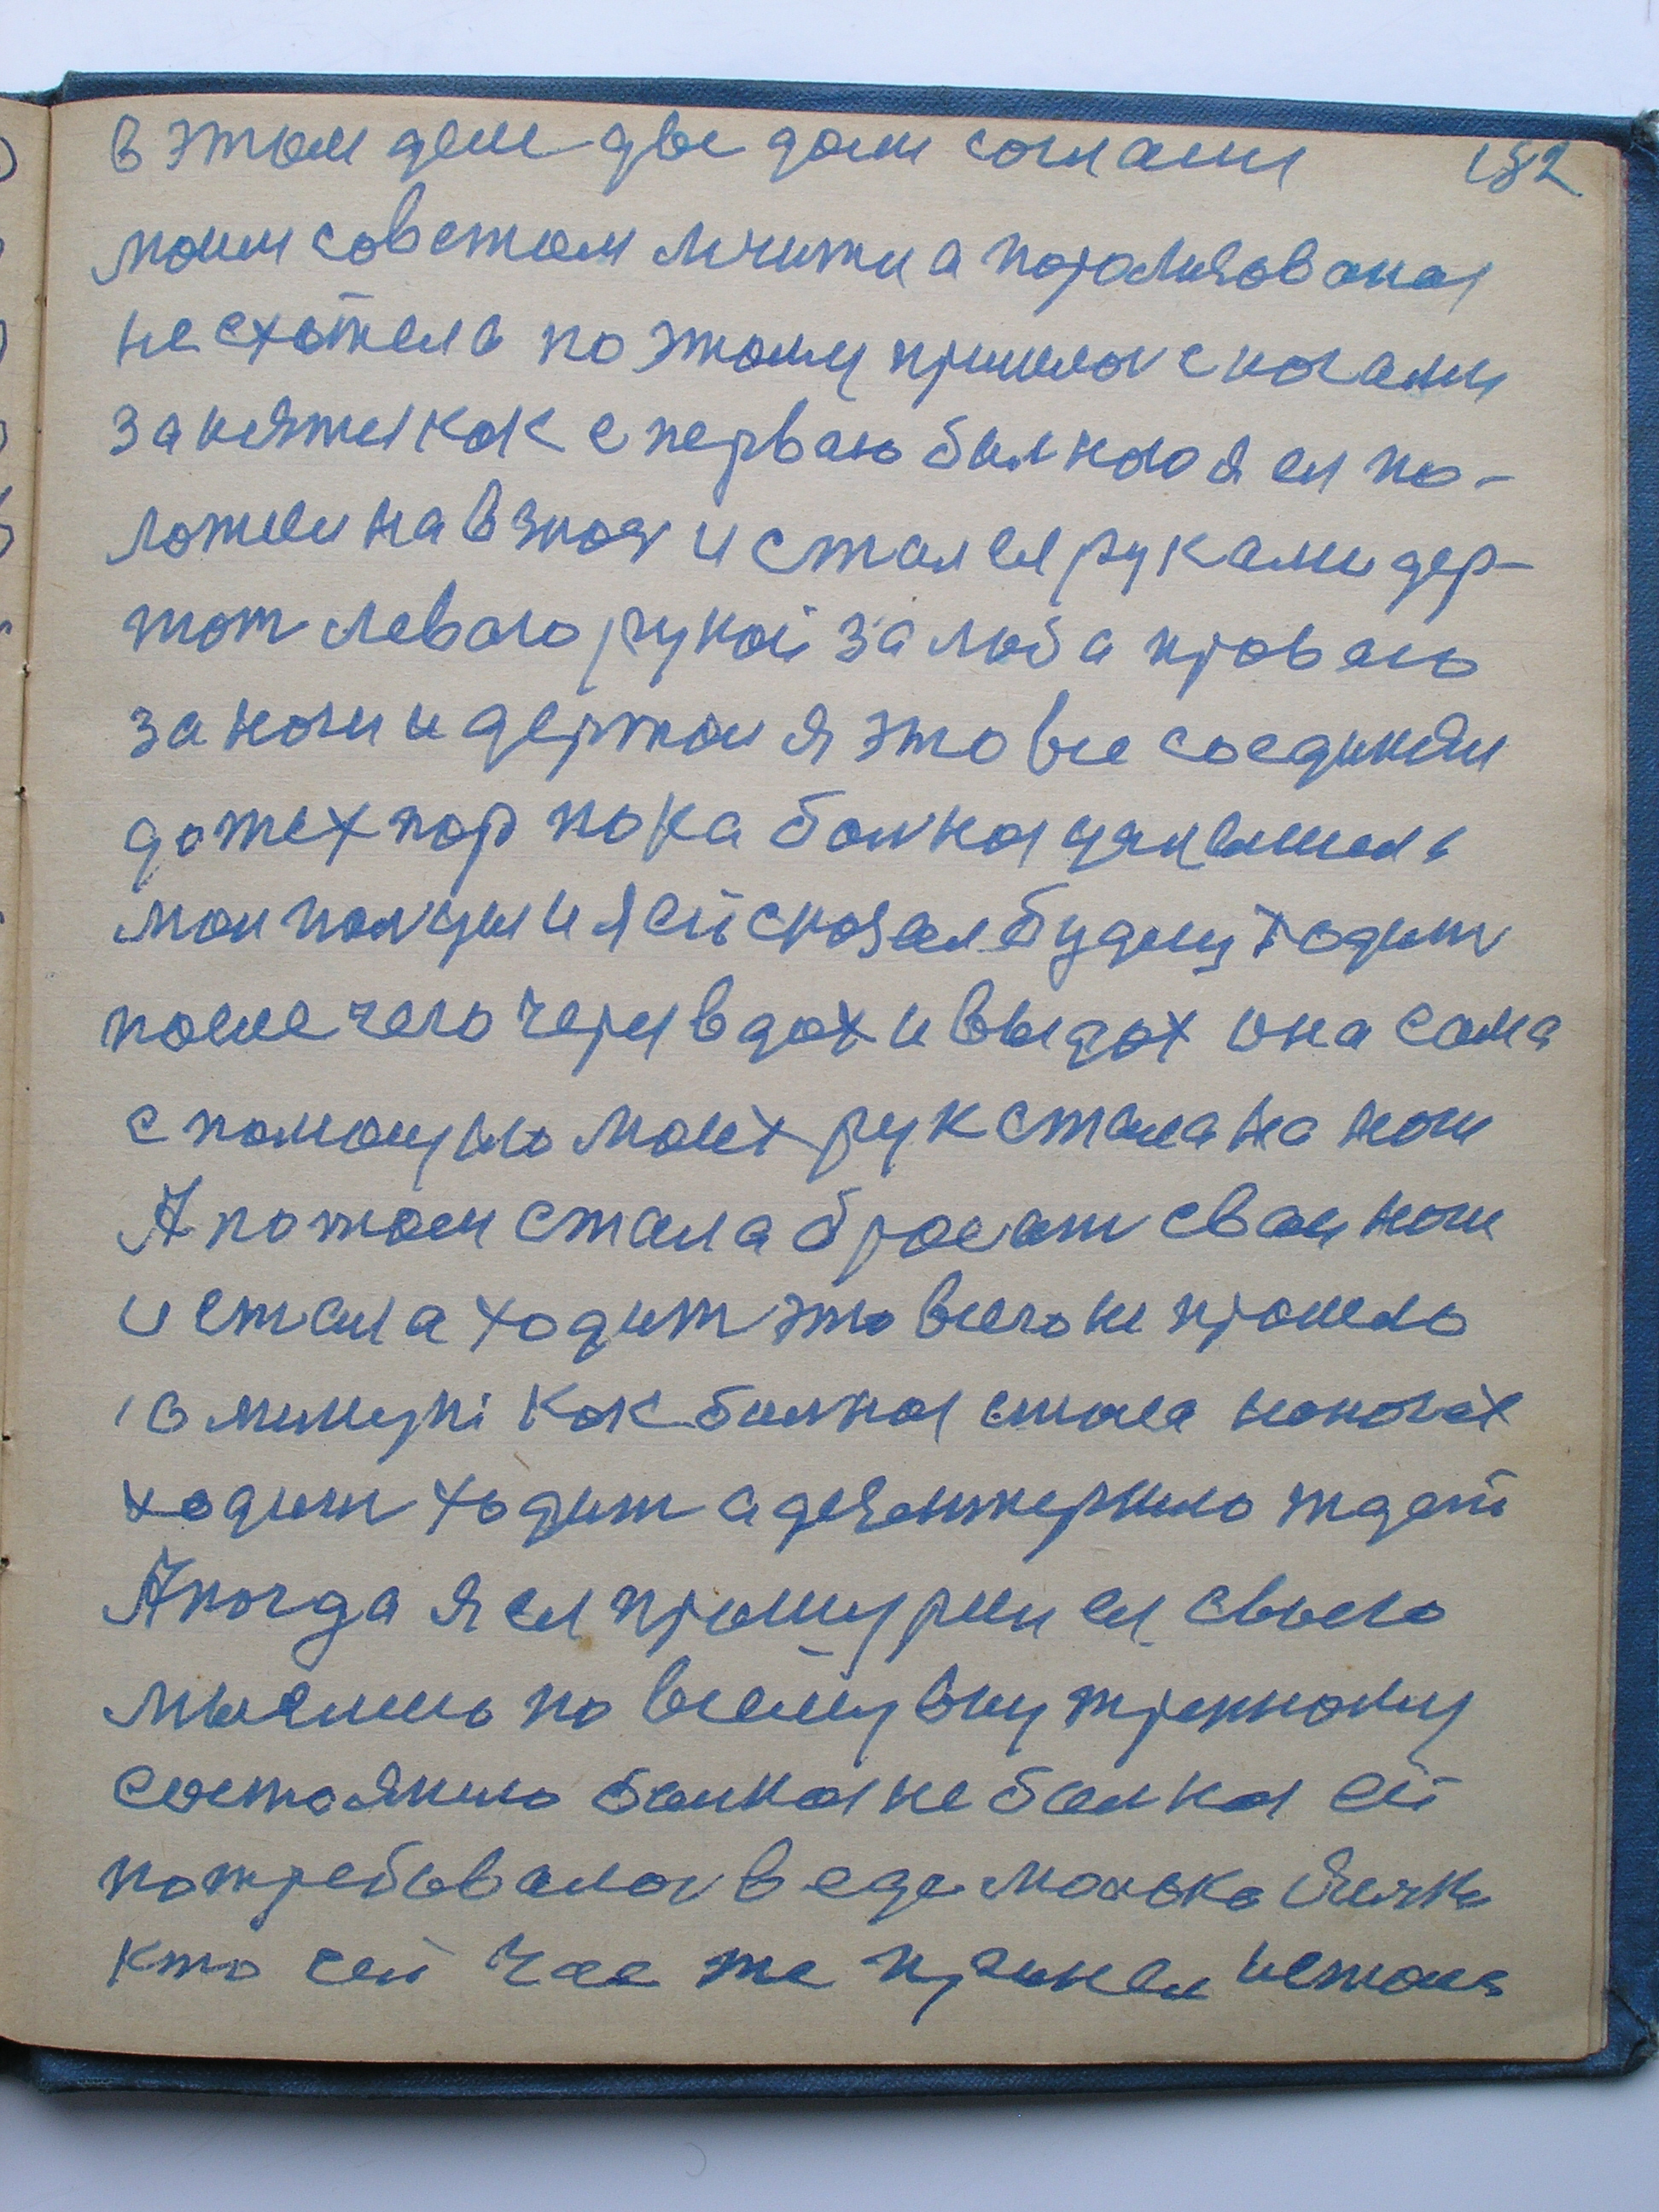 в этом деле две дали согласи 182
моим советом лечится а парализованая
не схотела поэтому пришлось с ногами
занятся как с первою больною я ея по-
ложил на взнач и стал ея руками дер-
жат левою рукой за лоб а правою
за ноги и держал я это все соединял
до тех пор пока больная услышала
мои и я ей сказал будиш ходит
после чего через вдох и выдох она сама
с помощью моих рук стала на ноги
А потом стала бросат сваи ноги
и стала ходит это всего не прошло
10 минут как больная стала на ногах
ходит ходит а дезентерию ждет
А когда я ея ея своею
мыслею по всему внутренному
состоянию больная не больная ей
потребовалось в еде молоко
кто сей час же принял и стала